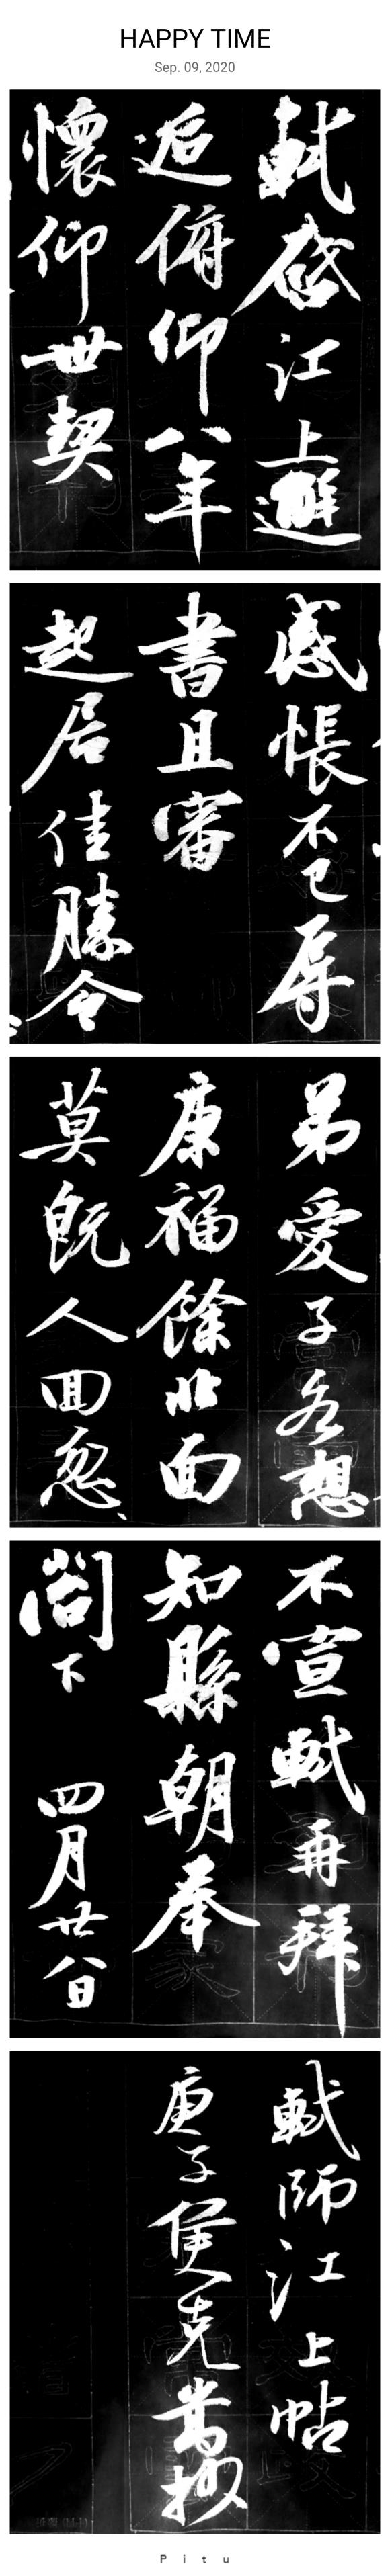 HAPPY TIME
Sep. 09, 2020
軾啟江上邂
逅俯仰八年
懷仰世契
感悵不已辱
書且審
起居佳勝令
弟愛子各想
康福餘非面
莫既人回怱、
不宣軾再拜
知縣朝奉
閣下 四月廿八日
軾師江上帖
庚子侯克抄
Pitu